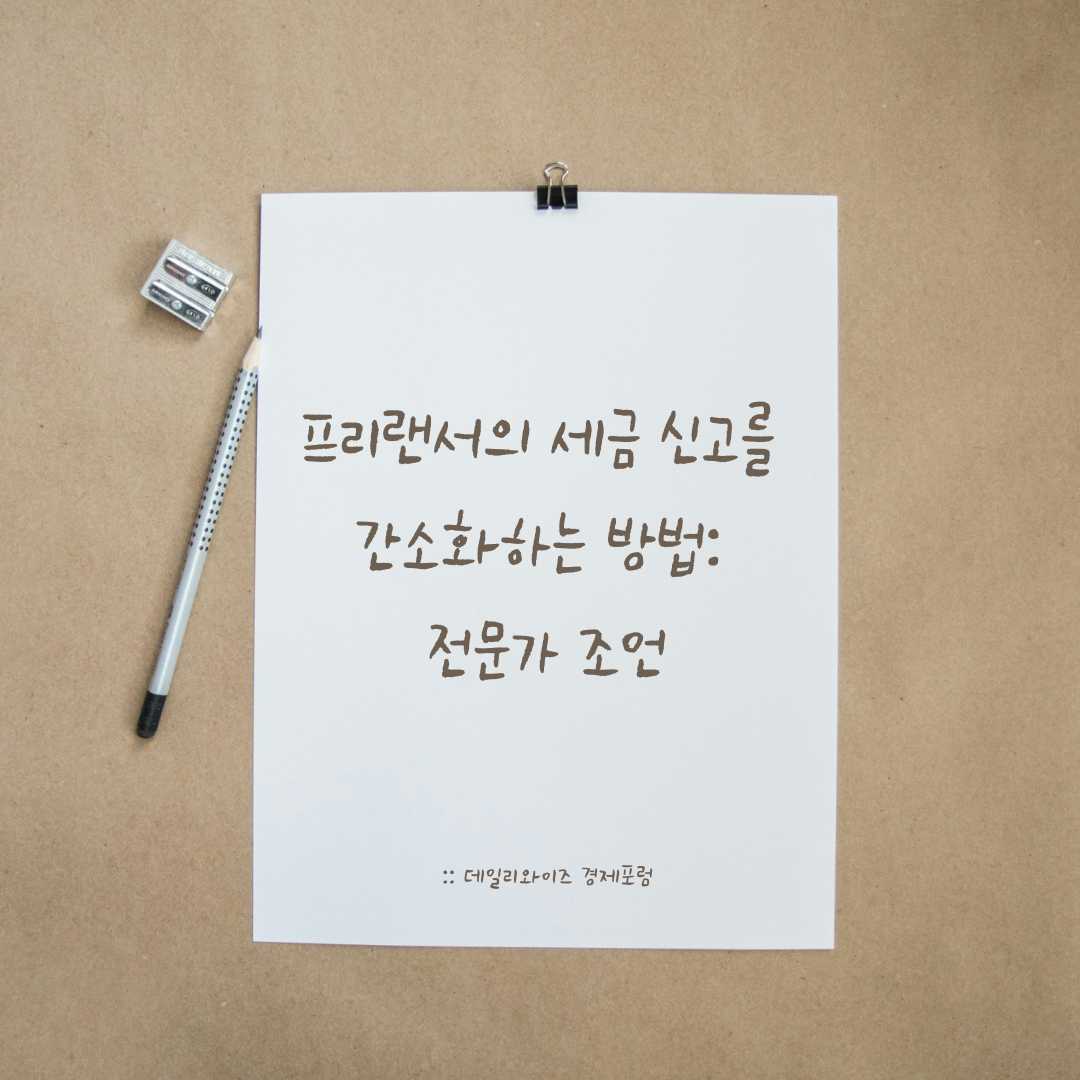 프리랜서의 세금 신고를
간소화하는 방법:
전문가 조언
:: 데일리와이즈 경제포럼